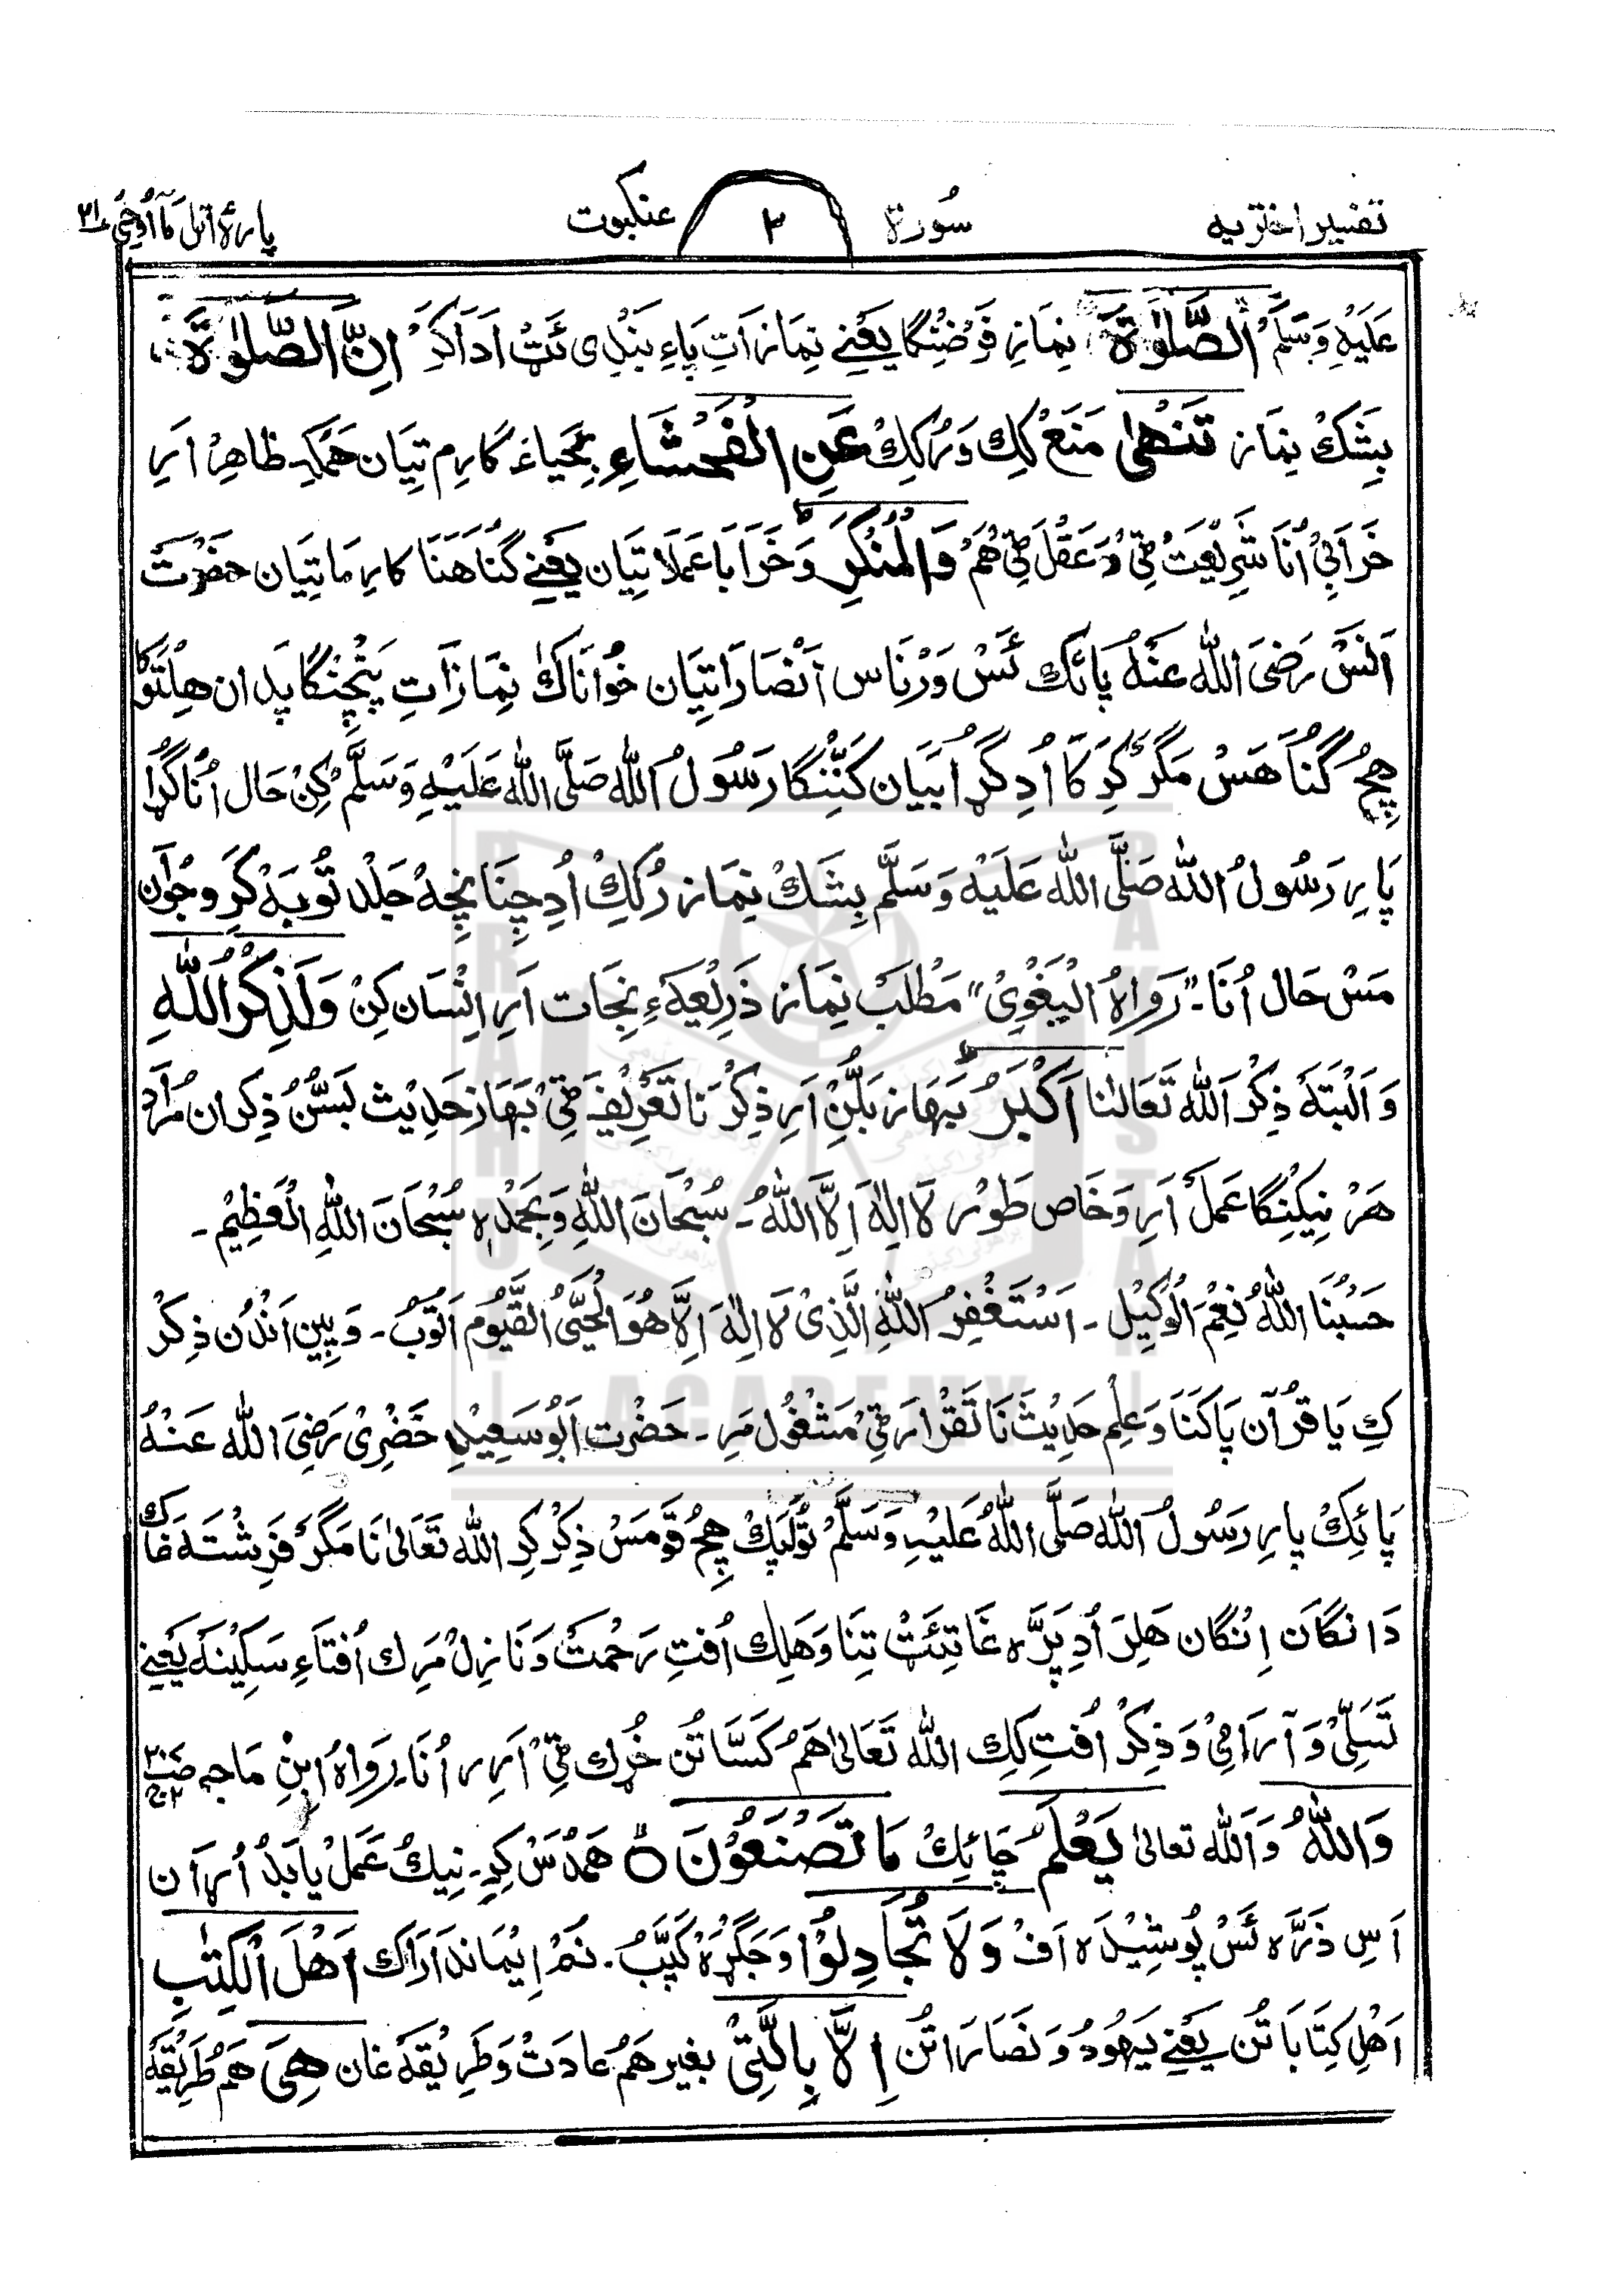 تفسیر اختریه سُورة ٢ عنکبوت پارۀ اتل مَآ اُوحِیَ ٢١
عَلَیْهِ وَسَلَّمْ الصَّلٰوةَ نِمَازِ فَرْضْنگا یَعْنِے نِمَازَاتِ پَاءِ بَنْدِی ئَٹْ اَدَا کَرْ اِنَّ الصَّلٰوةَ
بِشَکْ نِمَاز تَنْهٰی مَنَعْ کِکِ وَرُکِکْ عَنِ الْفَحْشَاءِ بِحَیَاءَ کَارِم تِیَان هَمَکِ ظَاهِرْ اَرِ
خَرَابِیْ اُنَا شَرِیْعَتْ ٹِیْ وَعَقْلَ ٹِیْ هُمْ وَالْمُنْکَرِ وَخَرَابَا عَمَلَاتِیَان یَعْنِے گُنَاهَنَا کَارِمَاتِیَان حَضْرَتْ
اَنَسْ رَضِیَ اللّٰهُ عَنْهُ پَائِکْ ئَسْ وَرْنَاس اَنْصَارَاتِیَان خُوَانَاکْ نِمَازَاتِ پَنْچِنْگَا پَدان هِلْتَوَکَا
هِچُ گُنَاهَسْ مَگَرْ کَرِکَا اُدِ گَڑا بَیَان کَنِّنْگَا رَسُولُ اللّٰه صَلَّی اللّٰهُ عَلَیْهِ وَسَلَّمْ کِنْ حَال اُنَا گُڑا
پَارِ رَسُولُ اللّٰه صَلَّی اللّٰهُ عَلَیْهِ وَسَلَّم بِشَکْ نِمَاز رُکِکْ اُدِ چِنَانِچِهْ جَلْد تُوبَهْ کَرِ وجُوان
مَسْ حَال اُنَا۔ "رَوَاهُ الْبَغْوِیْ" مَطْلَبْ نِمَاز ذَرِیْعَهءِ نِجَات اَرِ اِنْسَان کِنْ وَلَذِکْرُ اللّٰهِ
وَاَلْبَتَهْ ذِکْرَ اللّٰه تَعَالٰنَا اَکْبَرُ بَهَاز بَلُّنْ اَرِ ذِکْرْ نَا تَعْرِیْفَ ٹِیْ بَهَاز حَدِیْث بَسُّنْ ذِکر ان مُرَاد
هَرْ نِیکِنْگَا عَمَلْ اَرِ وَخَاص طَوْر لَا اِلٰهَ اِلَّا اللّٰهُ۔ سُبْحَانَ اللّٰهِ وَبِحَمْدِهٖ سُبْحَانَ اللّٰهِ الْعَظِیْمْ۔
حَسْبُنَا اللّٰهُ نِعْمَ الْوَکِیْل۔ اَسْتَغْفِرُ اللّٰهَ الَّذِیْ لَا اِلٰهَ اِلَّا هُوَ الْحَیُّ الْقَیُّوْم اَتُوْبُ۔ وَپِین اَنْدُن ذِکْرْ
کِ یَا قُرْآن پَاکَنَا وَعِلْمِ حَدِیْثَ نَا تَقْرَارَ ٹِیْ مَشْغُول مَرِ۔ حَضْرَت اَبُوسَعِیْدِ خُضْرِیْ رَضِیَ اللّٰه عَنْهُ
پَائِکْ پَارِ رَسُولُ اللّٰه صَلَّی اللّٰهُ عَلَیْهِ وَسَلَّمْ تُولپَکْ هِچُ قَوْمَسْ ذِکْرْ کَرِ اللّٰه تَعَالٰی نَا مَگَرْ فَرِشْتَه غَاک
دَانگَان اِنگَان هَلِرَ اُدِ پَرَّه غَاتِئَٹْ تِنَا وَهَلِک اُفْتِ رَحْمَتْ وَنَازِلْ مَرِک اُفْتَاءِ سَکِیْنَهْ یَعْنِے
تَسَلِّیْ وَآرَامِیْ وَذِکْرْ اُفْتِ کِکِ اللّٰه تَعَالٰی هَمْ کَسَّاتُن خُڑِک ٹِیْ اَرِر اُنَا۔ رَوَاهُ ابْنِ مَاجه
وَاللّٰهُ وَاَللّٰه تعالیٰ یَعْلَمُ چَائِکْ مَا تَصْنَعُوْنَ هَمْدُسْ کِرِ۔ نِیکُ عَمَلْ یَا بَدْ اُرِآن
اَسِ ذَرَّه ئَسْ پُوشِیْدَه اَفْ وَلَا تُجَادِلُوْا وَجَگْڑَهْ کَپَّبُ۔ نُمْ اِیْمَاندَارَاک اَهْلَ الْکِتٰبِ
اَهْلِ کِتَابَاتُن یَعْنِے یَهُودُ وَنَصَارَاتُن اِلَّا بِالَّتِیْ بغیر هَمْ عادَتْ وَطَرِیْقَهْ غَان هِیَ هَمْ طَرِیْقَهْ
BRAHUI ACADEMY PAKISTAN